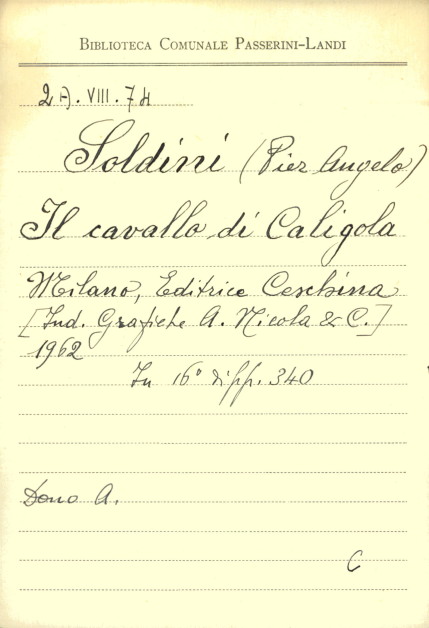 BIBLIOTECA COMUNALE PASSERINI-LANDI
2A. VIII. 74
Soldini (Pier Angelo)
Il cavallo di Caligola
Milano, Editrice Ceschina
[Ind. Grafiche A. Nicola & C.]
1962
In 16° di pp. 340
Dono A.
C